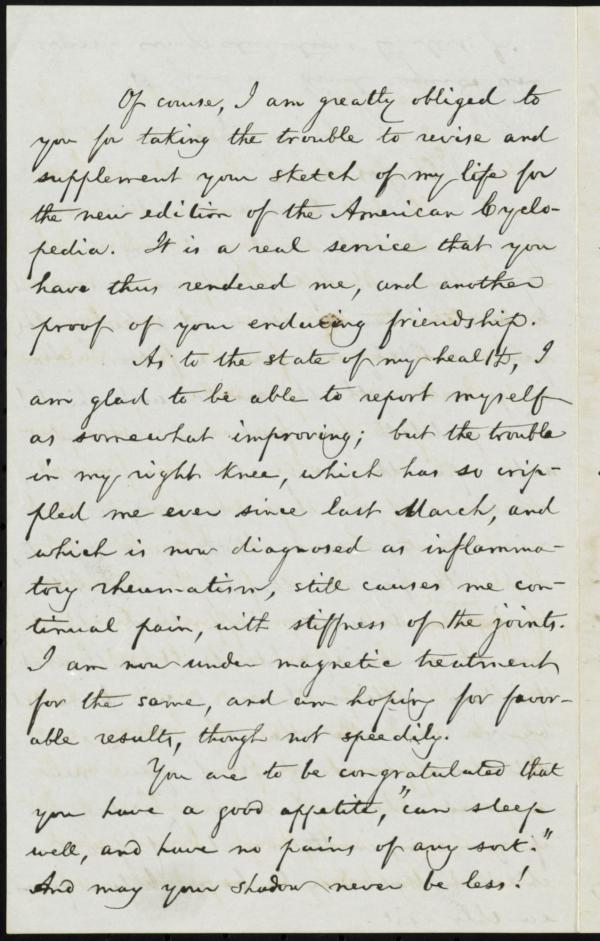 Of course, I am greatly obliged to
you for taking the trouble to revise and
supplement your sketch of my life for
the new edition of the American Cyclo-
pedia. It is a real service that you
have thus rendered me, and another
proof of your enduring friendship.
As to the state of my health, I
am glad to be able to report myself
as somewhat improving; but the trouble
in my right knee, which has so crip-
pled me ever since last March, and
which is now diagnosed as inflamma-
tory rheumatism, still causes me con-
tinual pain, with stiffness of the joints.
I am now under magnetic treatment
for the same, and am hoping for favor-
able results, though not speedily.
You are to be congratulated that
you have a good appetite, "can sleep
well, and have no pains of any sort."
And may your shadow never be less!